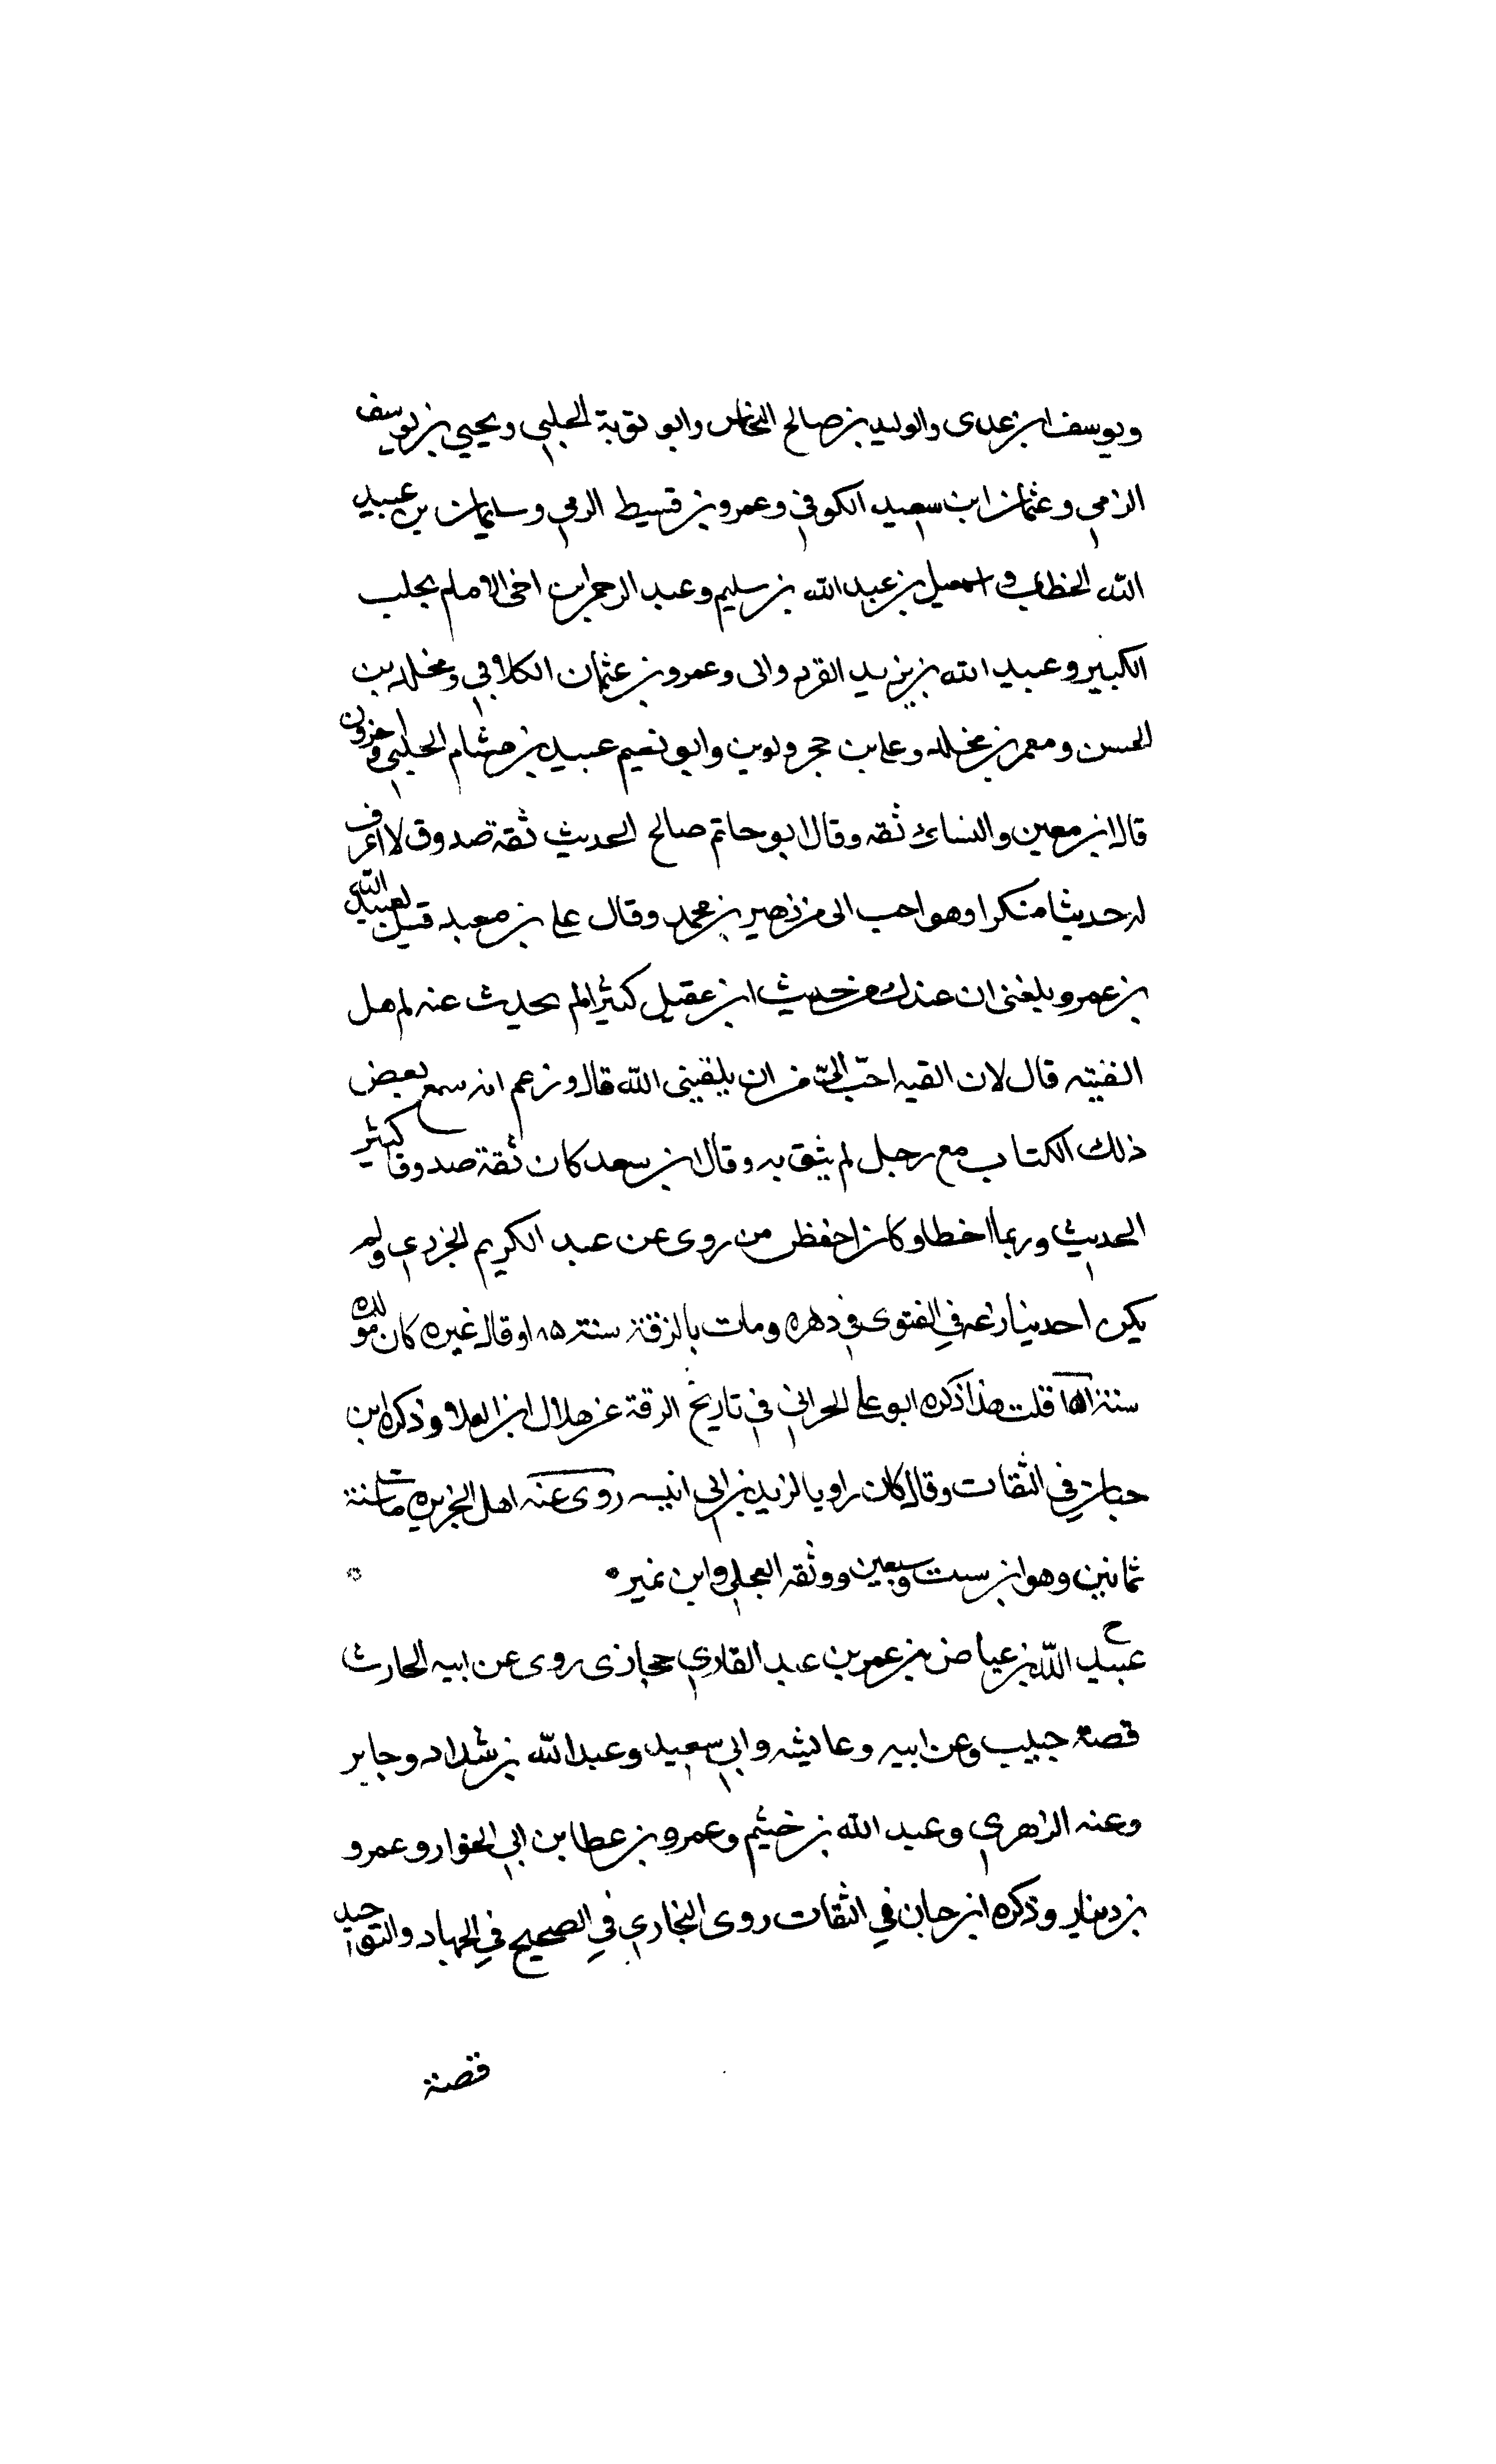 ويوسف ابن عدى والوليد بن صالح النخاس وابو توبة الحلبي ويحيي بن يوسف
الزمي وعثمان ابن سعيد الكوفي وعمرو بن قسيط الرقي وسليمان بن عبيد
الله الخطاب واسمعيل بن عبد الله بن سليم وعبد الرحمن ابن اخى الامام بحلب
الكبير وعبيد الله بن يزيد القردوانى وعمرو بن عثمان الكلابي ومخلد بن
الحسن ومعمر بن مخلد وعلى بن حجر ولوين وابو نعيم عبيد بن هشام الحلبي واخرون
قال ابن معين والنسائ ثقه وقال ابو حاتم صالح الحديث ثقة صدوق لا اعرف
له حديثا منكرا وهو احب الى من زهير بن محمد وقال على بن معبد قيل لعبيد الله
بن عمرو بلغنى ان عندك من حديث ابن عقيل كثيرا لم تحدث عنه لم هل
الفيته قال لان القيه احبّ الىّ من ان يلقينى الله قال وزعم انه سمع بعض
ذلك الكتاب مع رجل لم يثق به وقال ابن سعد كان ثقة صدوقا كثير
الحديث وربما اخطا وكان احفظ من روى عن عبد الكريم الجزري ولم
يكن احد ينازعه في الفتوى في دهره ومات بالرقة سنة ١٨٥ وقال غيره كان مولده
سنة ١٥١ قلت هذا ذكره ابو على الحراني في تاريخ الرقة عن هلال ابن العلا وذكره ابن
حبان في الثقات وقال كان راويا لزيد بن ابي انيسه روى عنه اهل الجزيره مات سنة
ثمانين وهو ابن ست وسبعين ووثقه العجلي وابن نمير
عبيد الله بن عياض بن عمر بن عبد القاري حجازى روى عن ابيه الحارث
قصة خبيب وعن ابيه وعايشه وابي سعيد وعبد الله بن شداد وجابر
وعنه الزهري وعبد الله بن خثيم وعمرو بن عطا بن ابي الخوار وعمرو
بن دينار وذكره ابن حبان في الثقات روى البخاري في الصحيح في الجهاد والتوحيد
قصة